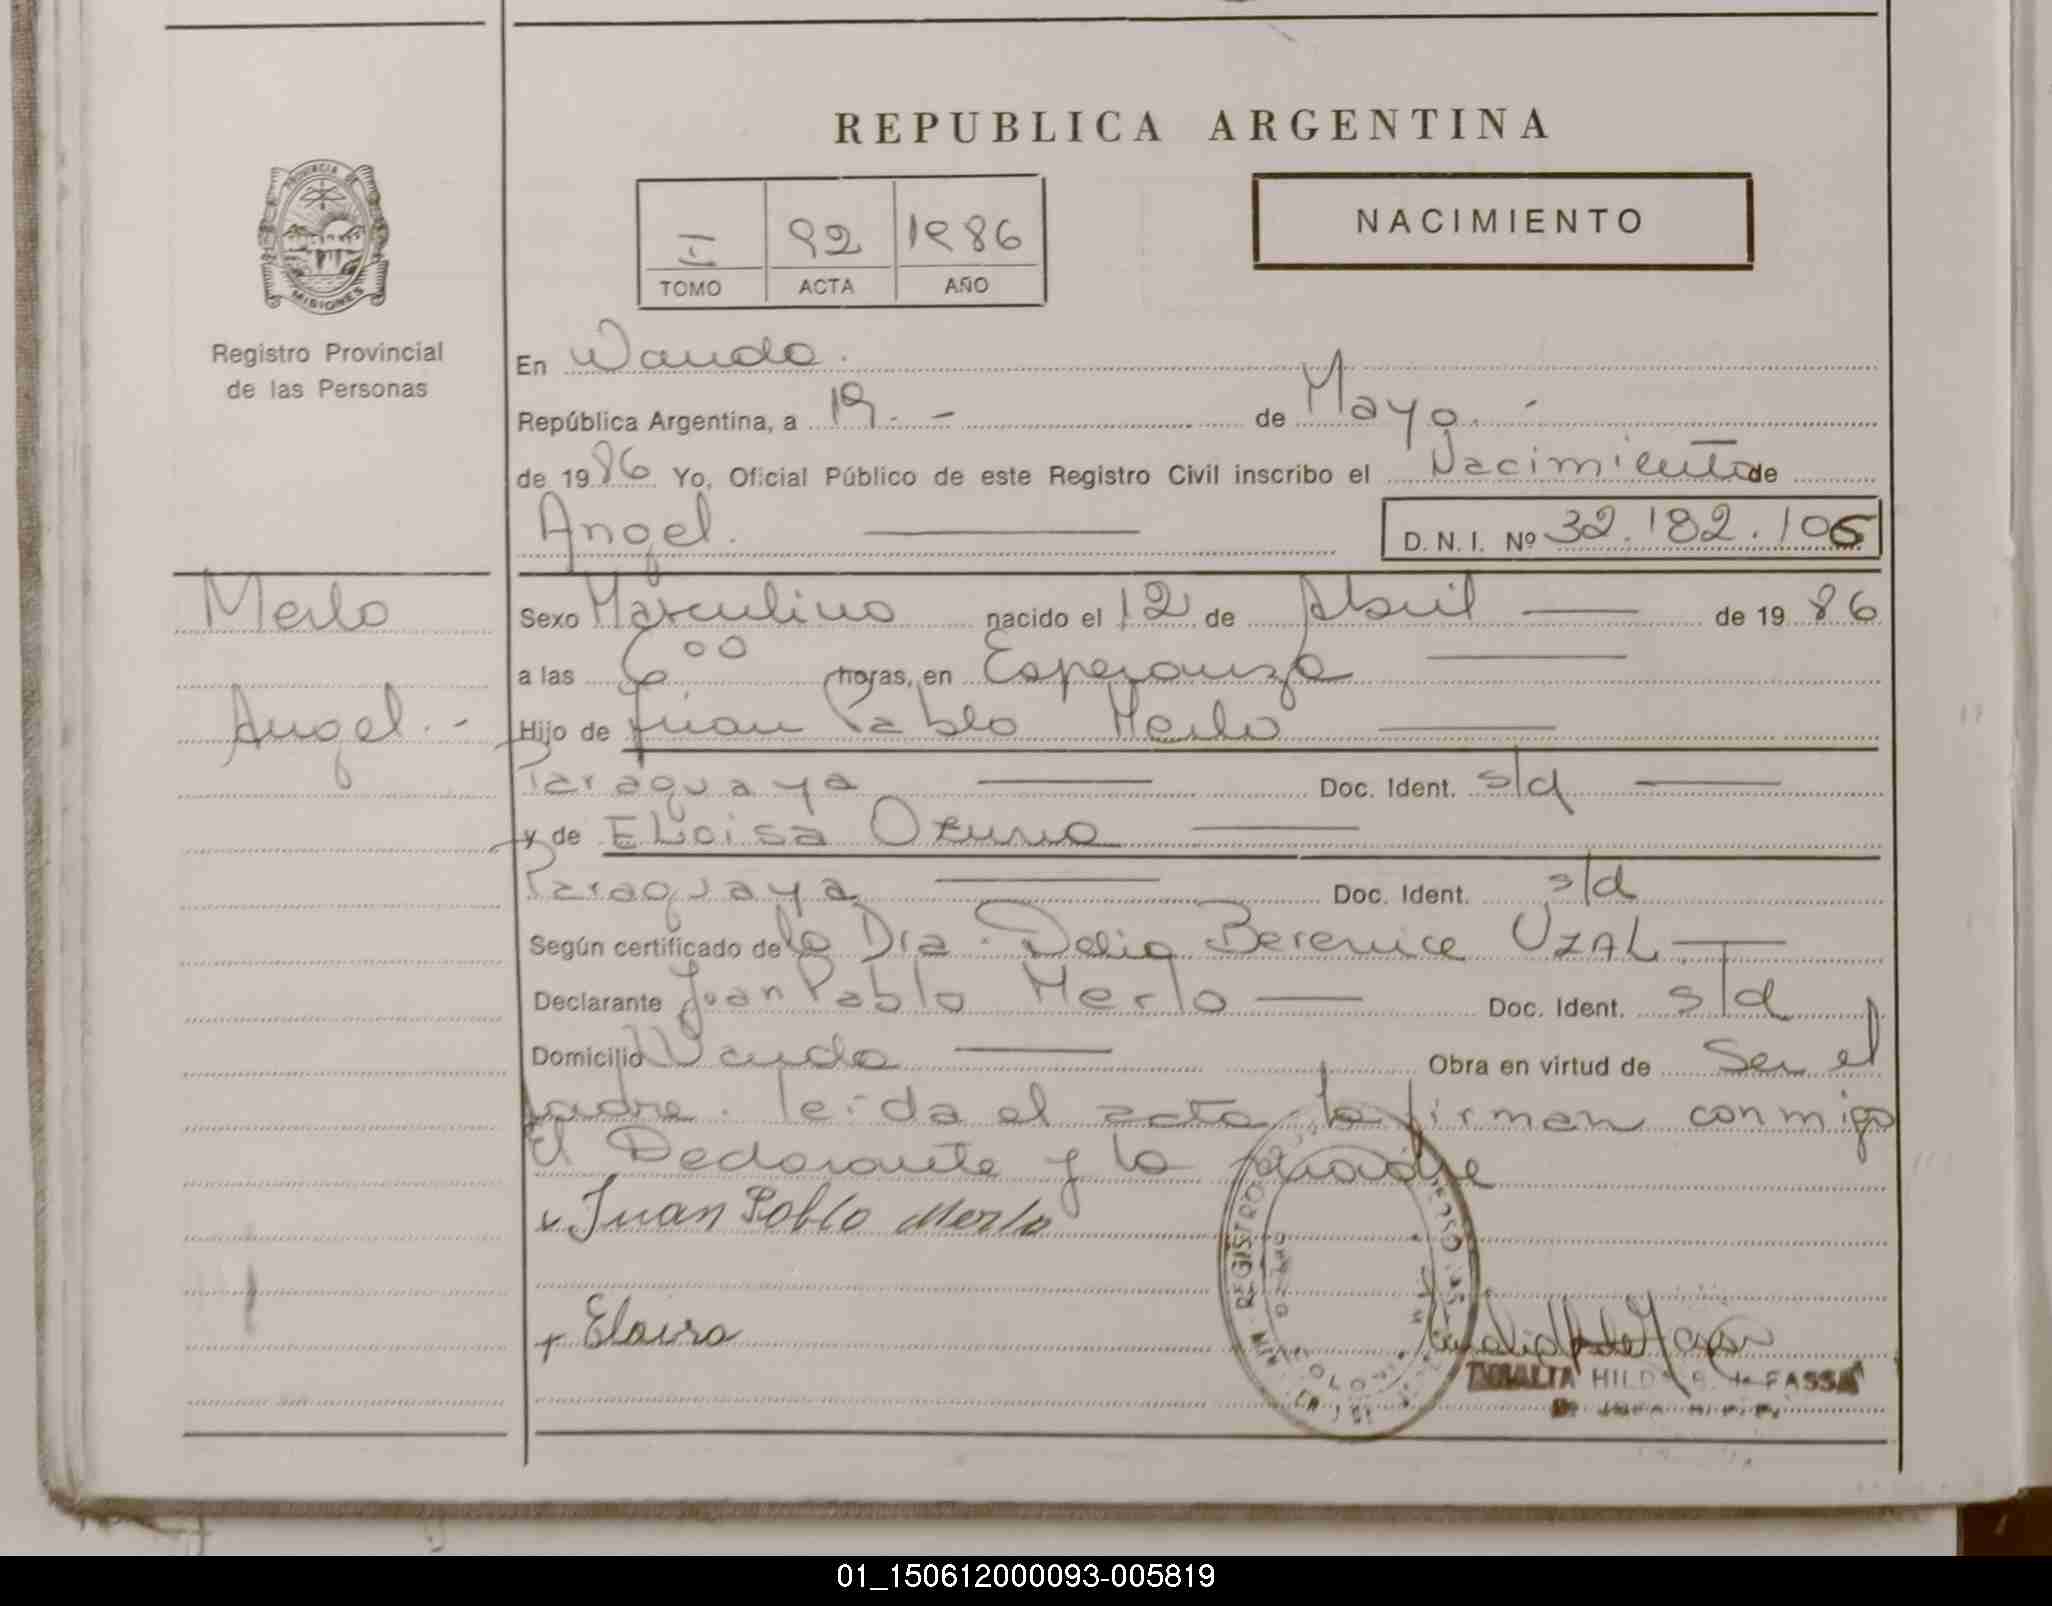 REPUBLICA ARGENTINA
NACIMIENTO
I 92 1986
TOMO ACTA AÑO
PROVINCIA DE
MISIONES
Registro Provincial
de las Personas
En Wanda.
República Argentina, a 19.- de Mayo.-
de 1986 Yo, Oficial Público de este Registro Civil inscribo el Nacimiento de
Angel. D. N. I. Nº 32.182.106
Merlo
Angel.-
Sexo Masculino nacido el 12 de Abril de 1986
a las 6 00 horas, en Esperanza
Hijo de Juan Pablo Merlo
Paraguaya Doc. Ident. s/d
y de ELoisa
Paraguaya Doc. Ident. s/d
Según certificado de la Dra. Delia Berenice UZAL
Declarante Juan Pablo Merlo Doc. Ident. s/d
Domicilio Wanda Obra en virtud de Ser el
padre. leida el acta la firman conmigo
El Declarante y la madre
Juan Pablo Merlo
REGISTRO
HILDA de FASSA
01_150612000093-005819